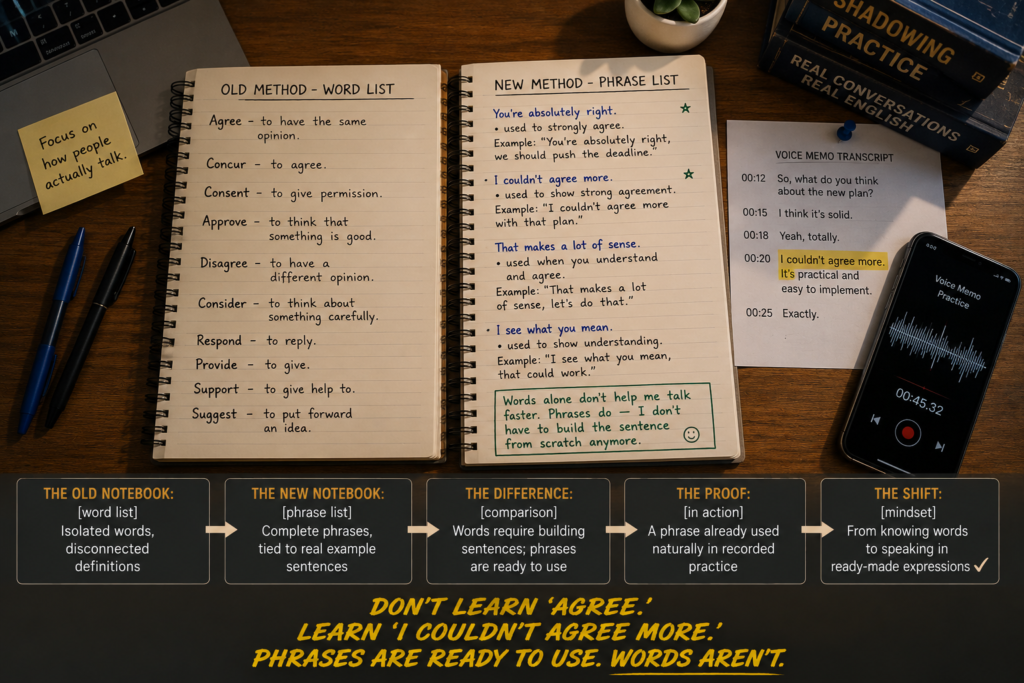 Focus on
how people
actually talk.
OLD METHOD – WORD LIST
Agree – to have the same
opinion.
Concur – to agree.
Consent – to give permission.
Approve – to think that
something is good.
Disagree – to have a
different opinion.
Consider – to think about
something carefully.
Respond – to reply.
Provide – to give.
Support – to give help to.
Suggest – to put forward
an idea.
NEW METHOD – PHRASE LIST
You're absolutely right.
• used to strongly agree.
Example: "You're absolutely right,
we should push the deadline."
• I couldn't agree more.
• used to show strong agreement.
Example: "I couldn't agree more
with that plan."
That makes a lot of sense.
• used when you understand
and agree.
Example: "That makes a lot
of sense, let's do that."
• I see what you mean.
• used to show understanding.
Example: "I see what you mean,
that could work."
Words alone don't help me talk
faster. Phrases do — I don't
have to build the sentence
from scratch anymore.
SHADOWING
PRACTICE
REAL CONVERSATIONS
REAL ENGLISH
VOICE MEMO TRANSCRIPT
00:12 So, what do you think
about the new plan?
00:15 I think it's solid.
00:18 Yeah, totally.
00:20 I couldn't agree more.
It's practical and
easy to implement.
00:25 Exactly.
Voice Memo
Practice
00:45.32
THE OLD NOTEBOOK:
[word list]
Isolated words,
disconnected
definitions
THE NEW NOTEBOOK:
[phrase list]
Complete phrases,
tied to real example
sentences
THE DIFFERENCE:
[comparison]
Words require building
sentences; phrases
are ready to use
THE PROOF:
[in action]
A phrase already used
naturally in recorded
practice
THE SHIFT:
[mindset]
From knowing words
to speaking in
ready-made expressions ✓
DON'T LEARN 'AGREE.'
LEARN 'I COULDN'T AGREE MORE.'
PHRASES ARE READY TO USE. WORDS AREN'T.